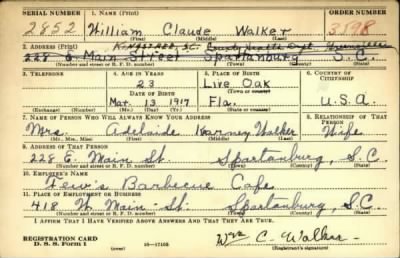 SERIAL NUMBER 1. NAME (Print) ORDER NUMBER
2852 William Claude Walker 3598
(First) (Middle) (Last)
2. ADDRESS (Print) Kingstree, S.C.
228 E. Main Street Spartanburg S.C.
(Number and street or R. F. D. number) (Town) (County) (State)
3. TELEPHONE 4. AGE IN YEARS 5. PLACE OF BIRTH 6. COUNTRY OF CITIZENSHIP
23 Live Oak
DATE OF BIRTH (Town or county)
Mar. 13 1917 Fla. U.S.A.
(Exchange) (Number) (Mo.) (Day) (Yr.) (State or country)
7. NAME OF PERSON WHO WILL ALWAYS KNOW YOUR ADDRESS 8. RELATIONSHIP OF THAT PERSON
Mrs. Adelaide Karney Walker Wife
(Mr., Mrs., Miss) (First) (Middle) (Last)
9. ADDRESS OF THAT PERSON
228 E. Main St. Spartanburg, S.C.
(Number and street or R. F. D. number) (Town) (County) (State)
10. EMPLOYER'S NAME
Barbecue Cafe
11. PLACE OF EMPLOYMENT OR BUSINESS
418 W. Main St. Spartanburg, S.C.
(Number and street or R. F. D. number) (Town) (County) (State)
I AFFIRM THAT I HAVE VERIFIED ABOVE ANSWERS AND THAT THEY ARE TRUE.
REGISTRATION CARD
D. S. S. Form 1 (over) 16—17105 Wm C. Walker
(Registrant's signature)